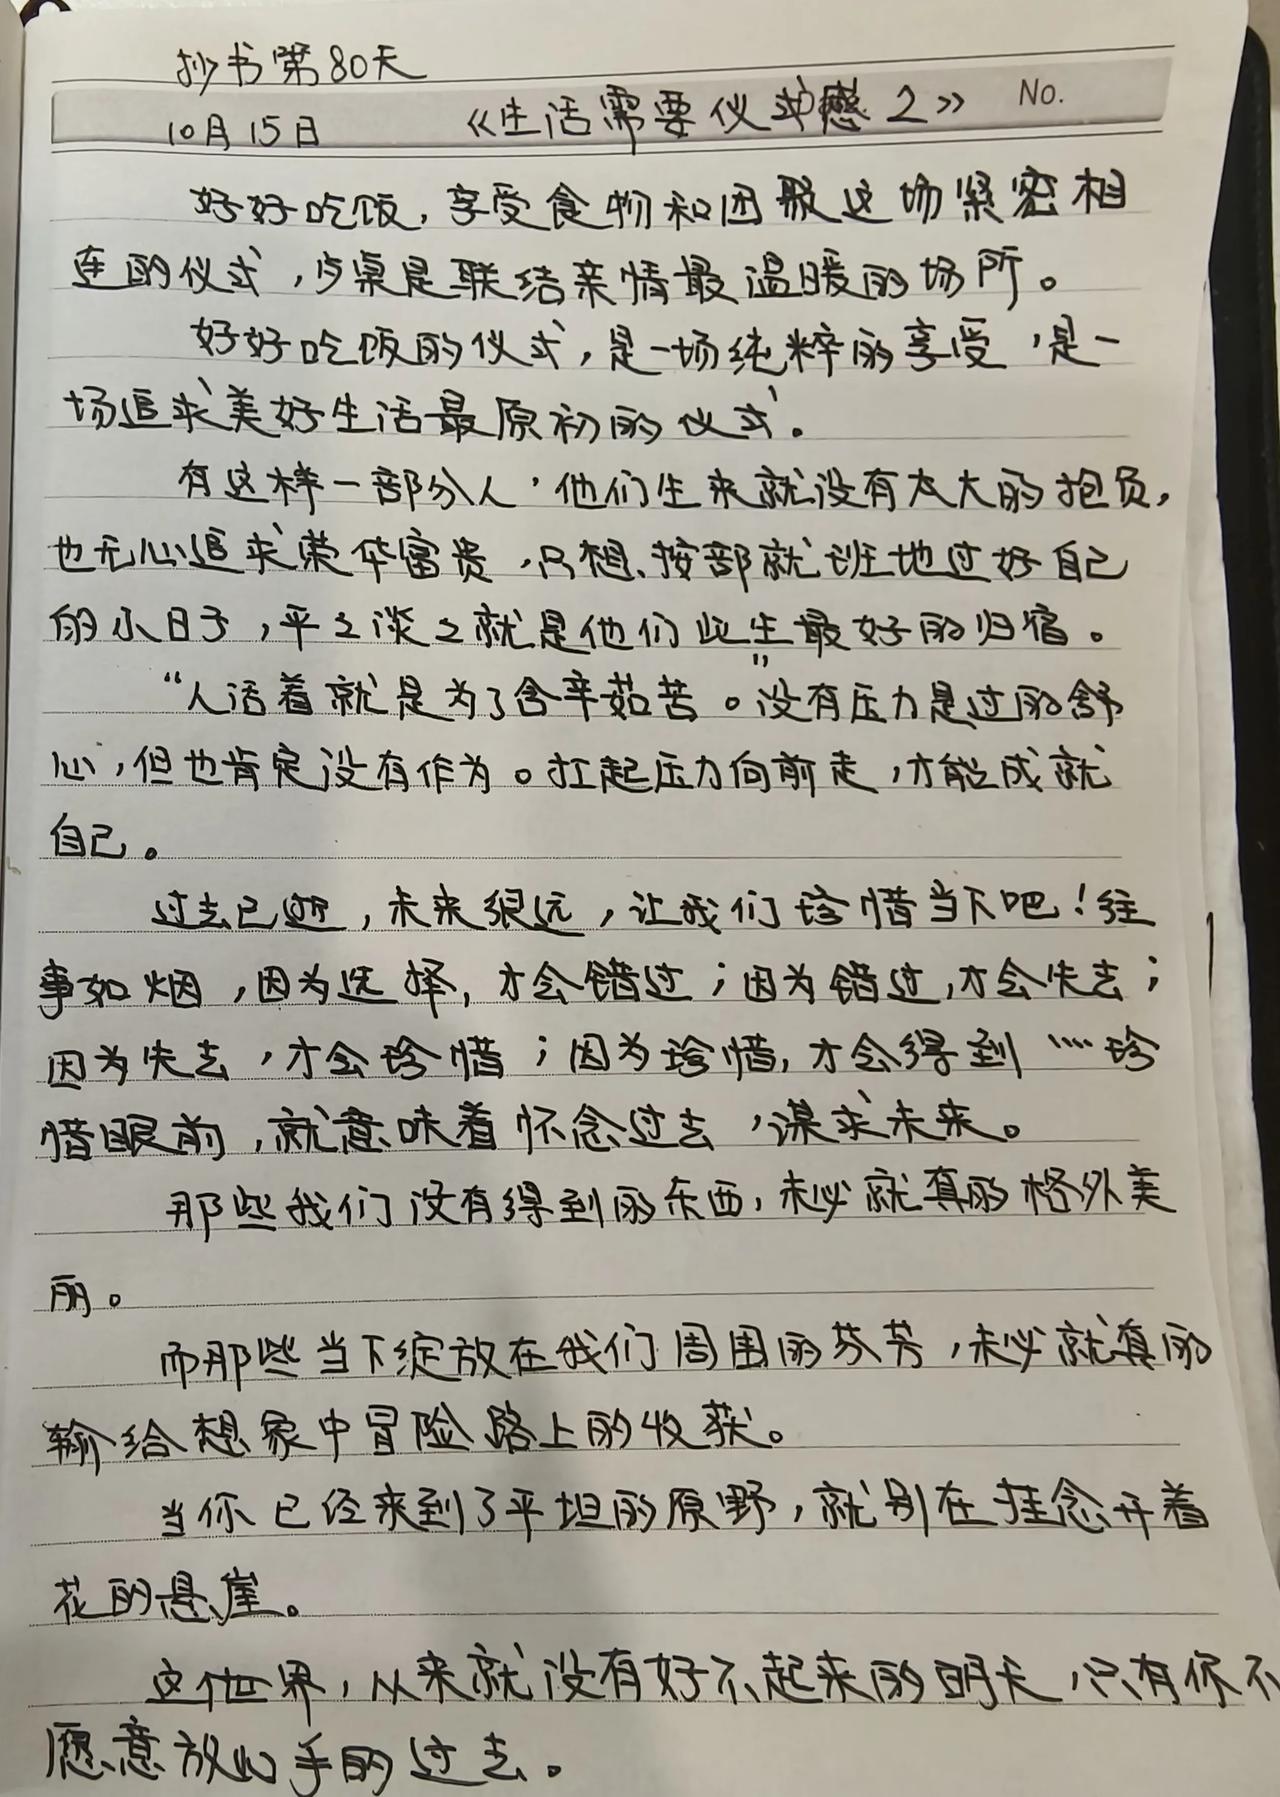 抄书第80天
10月15日 《生活需要仪式感2》 No.
好好吃饭，享受食物和团聚这场紧密相
连的仪式，与桌是联结亲情最温暖的场所。
好好吃饭的仪式，是一场纯粹的享受，是一
场追求美好生活最原初的仪式。
有这样一部分人，他们生来就没有太大的抱负，
也无心追求荣华富贵，只想按部就班地过好自己
的小日子，平々淡々就是他们此生最好的归宿。
“人活着就是为了含辛茹苦。”没有压力是过的舒
心，但也肯定没有作为。扛起压力向前走，才能成就
自己。
过去已逝，未来很远，让我们珍惜当下吧！往
事如烟，因为选择，才会错过；因为错过，才会失去；
因为失去，才会珍惜；因为珍惜，才会得到……珍
惜眼前，就意味着怀念过去，谋求未来。
那些我们没有得到的东西，未必就真的格外美
丽。
而那些当下绽放在我们周围的芬芳，未必就真的
输给想象中冒险路上的收获。
当你已经来到了平坦的原野，就别在挂念开着
花的悬崖。
这世界，从来就没有好不起来的明天，只有你不
愿意放手的过去。